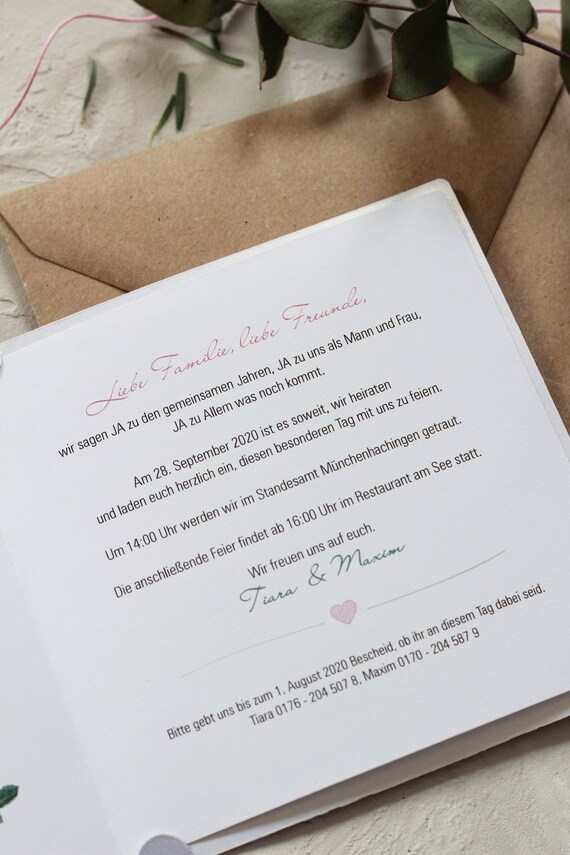 Liebe Familie, liebe Freunde,
wir sagen JA zu den gemeinsamen Jahren, JA zu uns als Mann und Frau,
JA zu Allem was noch kommt.
Am 28. September 2020 ist es soweit, wir heiraten
und laden euch herzlich ein, diesen besonderen Tag mit uns zu feiern.
Um 14:00 Uhr werden wir im Standesamt Münchenhachingen getraut.
Die anschließende Feier findet ab 16:00 Uhr im Restaurant am See statt.
Wir freuen uns auf euch.
Tiara & Maxim
Bitte gebt uns bis zum 1. August 2020 Bescheid, ob ihr an diesem Tag dabei seid.
Tiara 0176 - 204 507 8, Maxim 0170 - 204 587 9